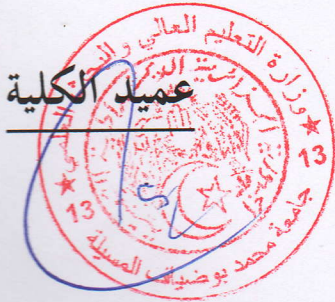 عميد الكلية
وزارة التعليم العالي والبحث العلمي
جامعة محمد بوضياف المسيلة
13
13